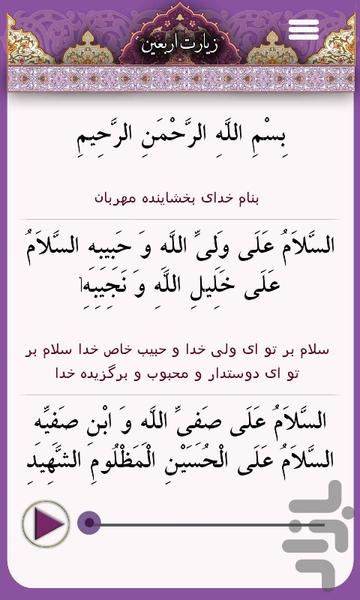 زیارت اربعین
بِسْمِ اللَّهِ الرَّحْمَنِ الرَّحِيمِ
بنام خدای بخشاینده مهربان
السَّلاَمُ عَلَى وَلِيِّ اللَّهِ وَ حَبِيبِهِ السَّلاَمُ
عَلَى خَلِيلِ اللَّهِ وَ نَجِيبِهِ
سلام بر تو ای ولی خدا و حبیب خاص خدا سلام بر
تو ای دوستدار و محبوب و برگزیده خدا
السَّلاَمُ عَلَى صَفِيِّ اللَّهِ وَ ابْنِ صَفِيِّهِ
السَّلاَمُ عَلَى الْحُسَيْنِ الْمَظْلُومِ الشَّهِيدِ
بازار